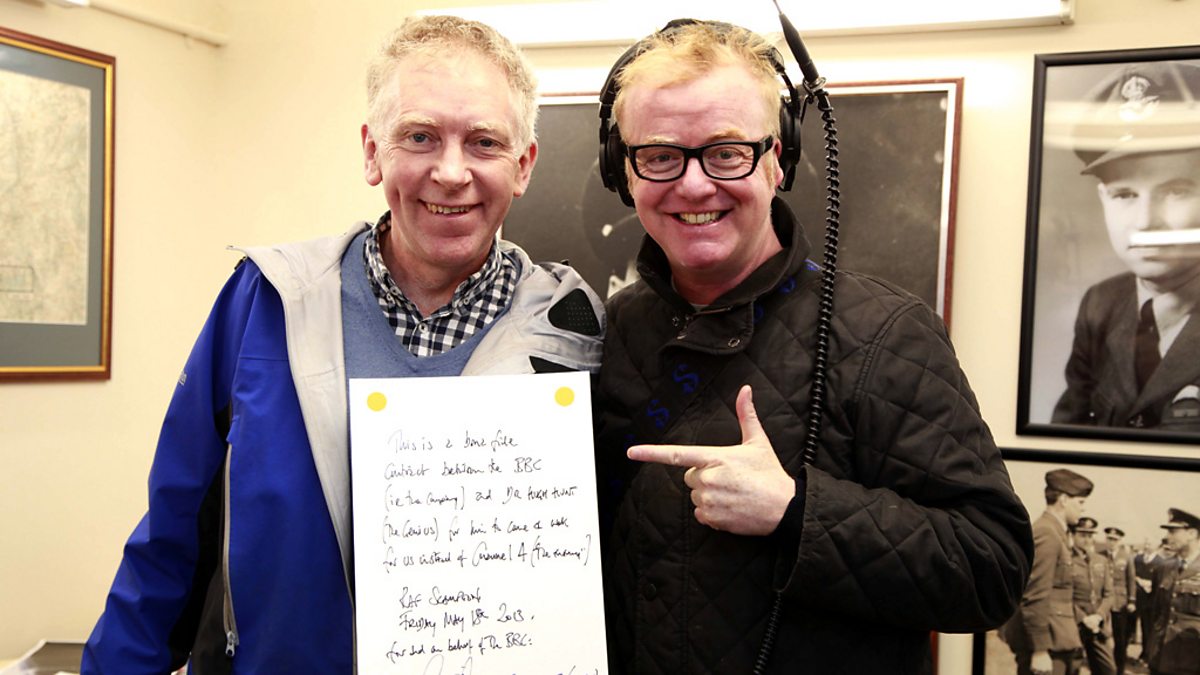 This is a bona fide
contract between the BBC
(ie the company) and DR HUGH HUNT
(The Genius) for him to come & work
for us instead of Channel 4 ("the enemy")
RAF SCAMPTON
FRIDAY MAY 2013.
for and on behalf of The BBC: